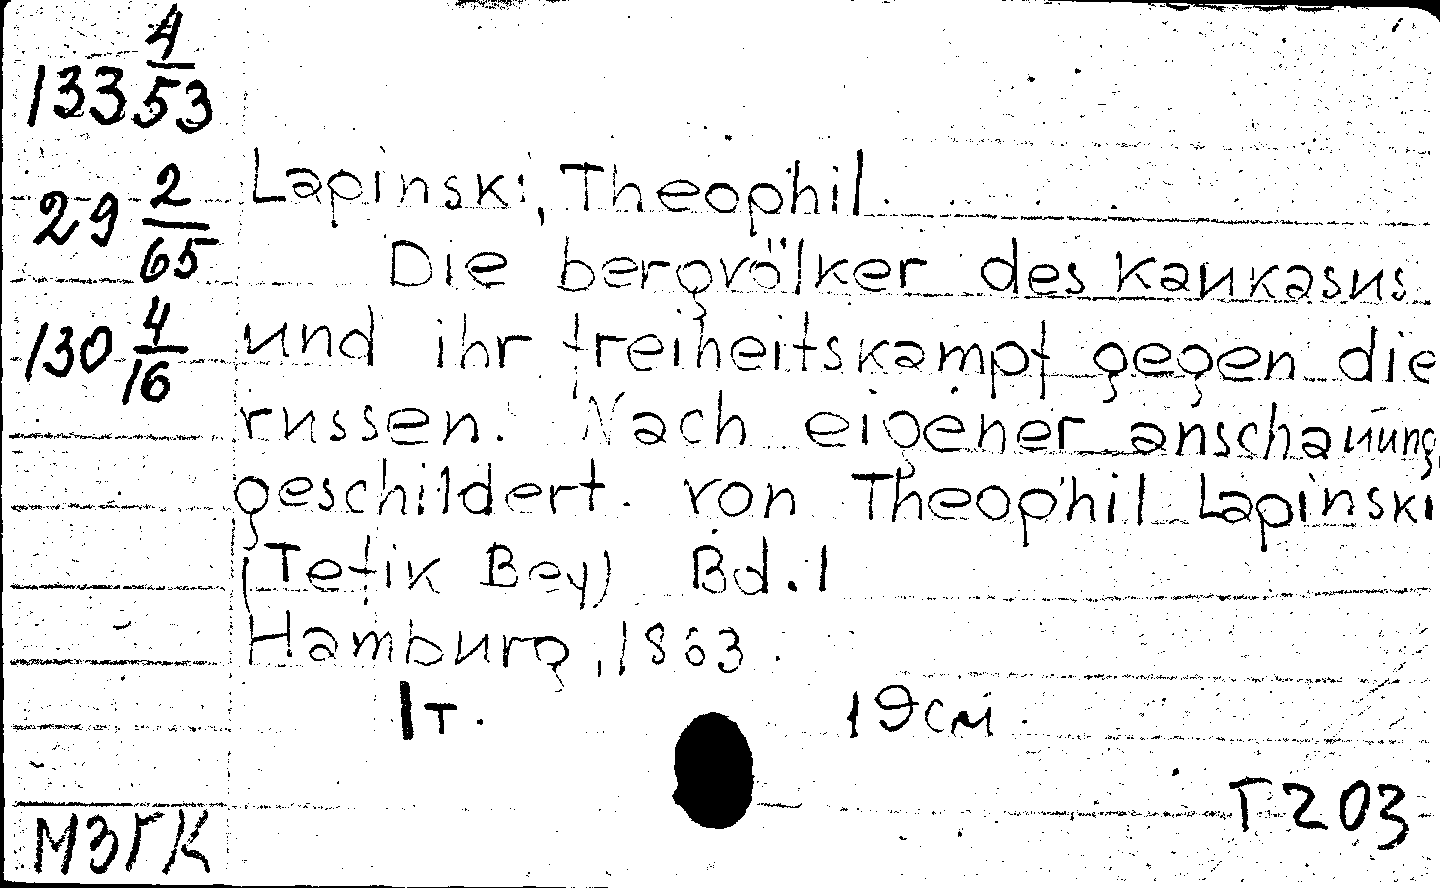 133 4/53
29 2/65
130 4/16
Lapinski, Theophil.
Die bergvölker des Kaukasus
und ihr freiheitskampf gegen die
russen. Nach eigener anschauung
geschildert. von Theophil Lapinski
(Tefik Bey) Bd. 1
Hamburg, 1863.
1т. 19см.
T 203
МЗГК